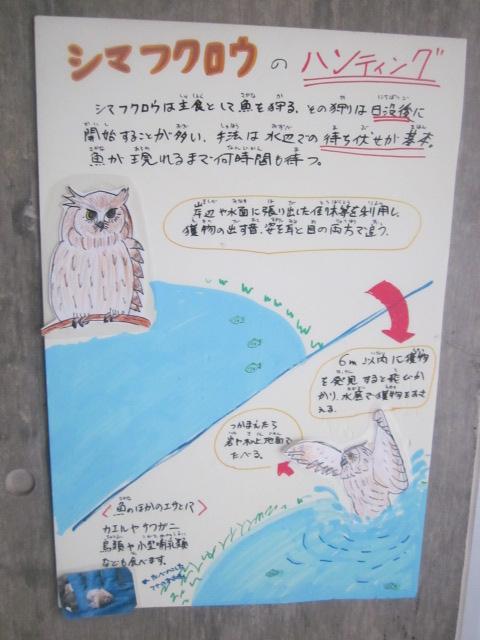 シマフクロウのハンティング
シマフクロウは主食として魚を狩る。その狩りは日没後に
開始することが多い。手法は水辺での待ち伏せが基本。
魚が現れるまで何時間も待つ。
岸辺や水面に張り出した倒木等を利用し、
獲物の出す音、姿を耳と目の両方で追う。
6m以内に獲物
を発見すると飛びか
かり、水底で獲物をおさ
える。
つかまえたら
岩や木の上、地面で
たべる。
〈魚のほかのエサとして〉
カエルやザリガニ
鳥類や小型哺乳類
なども食べます。